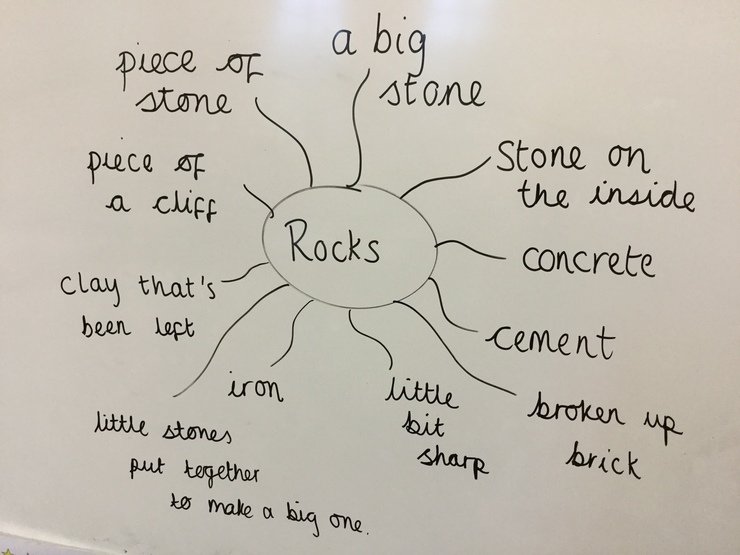 Rocks
a big
stone
Stone on
the inside
concrete
cement
broken up
brick
little
bit
sharp
iron
little stones
put together
to make a big one.
clay that's
been left
piece of
a cliff
piece of
stone